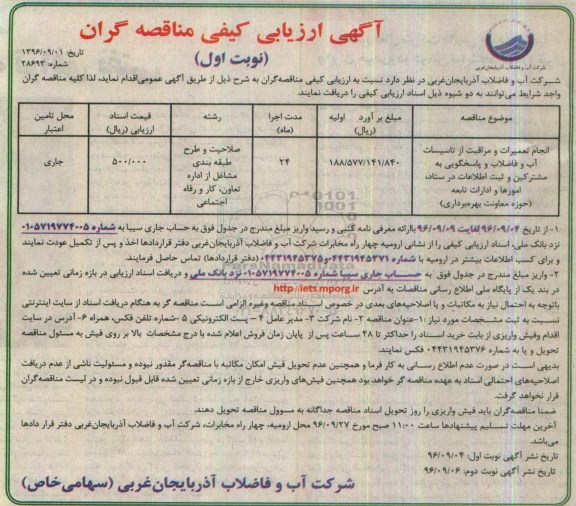 آگهی ارزیابی کیفی مناقصه گران
(نوبت اول)
تاریخ: ۱۳۹۶/۰۹/۰۱
شماره: ۲۸۶۹۳
شرکت آب و فاضلاب آذربایجان‌غربی
شرکت آب و فاضلاب آذربایجان‌غربی در نظر دارد نسبت به ارزیابی کیفی مناقصه‌گران به شرح ذیل از طریق آگهی عمومی‌اقدام نماید، لذا کلیه مناقصه گران
واجد شرایط می‌توانند به دو شیوه ذیل اسناد ارزیابی کیفی را دریافت نمایند.
موضوع مناقصه
مبلغ بر آورد اولیه (ریال)
مدت اجرا (ماه)
رشته
قیمت اسناد ارزیابی (ریال)
محل تامین اعتبار
انجام تعمیرات و مراقبت از تاسیسات
آب و فاضلاب و پاسخگویی به
مشترکین و ثبت اطلاعات در ستاد،
امورها و ادارات تابعه
(حوزه معاونت بهره‌برداری)
۱۸۸/۵۷۷/۱۴۱/۸۴۰
۲۴
صلاحیت و طرح
طبقه بندی
مشاغل از اداره
تعاون، کار و رفاه
اجتماعی
۵۰۰/۰۰۰
جاری
۱- از تاریخ ۹۶/۰۹/۰۴ لغایت ۹۶/۰۹/۰۹ باارائه معرفی نامه کتبی و رسید واریز مبلغ مندرج در جدول فوق به حساب جاری سیبا به شماره ۰۱۰۵۷۱۹۷۷۴۰۰۵
نزد بانک ملی، اسناد ارزیابی کیفی را از نشانی ارومیه چهار راه مخابرات شرکت آب و فاضلاب آذربایجان‌غربی دفتر قراردادها اخذ و پس از تکمیل عودت نمایند
و برای کسب اطلاعات بیشتر در ارومیه با شماره ۰۴۴۳۱۹۴۵۳۷۱ و ۰۴۴۳۱۹۴۵۳۷۵ (دفتر قراردادها) تماس حاصل فرمایند.
۲- واریز مبلغ مندرج در جدول فوق به حساب جاری سیبا شماره ۰۱۰۵۷۱۹۷۷۴۰۰۵ نزد بانک ملی و دریافت اسناد ارزیابی در بازه زمانی تعیین شده
در بند یک از پایگاه ملی اطلاع رسانی مناقصات به آدرس http://iets.mporg.ir
باتوجه به احتمال نیاز به مکاتبات و یا اصلاحیه‌های بعدی در خصوص اسناد مناقصه وغیره الزامی است مناقصه گر به هنگام دریافت اسناد از سایت اینترنتی
نسبت به ثبت مشخصات مورد نیاز :۱-عنوان مناقصه ۲- نام شرکت ۳- مدیر عامل ۴ – پست الکترونیکی ۵ -شماره تلفن فکس، همراه ۶- آدرس در سایت
اقدام وفیش واریزی از بابت خرید اسناد را حداکثر تا ۴۸ ساعت پس از پایان زمان فروش اعلام شده با درج مشخصات بالا بر روی فیش به مسئول مناقصه
تحویل و یا به شماره ۰۴۴۳۱۹۴۵۳۷۶ فکس نمایند.
بدیهی است در صورت عدم اطلاع رسانی به کار فرما و همچنین عدم تحویل فیش امکان مکاتبه با مناقصه‌گر مقدور نبوده و مسئولیت ناشی از عدم دریافت
اصلاحیه‌های احتمالی اسناد به عهده مناقصه گر خواهد بود همچنین فیش‌های واریزی خارج از بازه زمانی تعیین شده قابل قبول نبوده و در لیست مناقصه‌گران
قرار نخواهد گرفت.
ضمنا مناقصه‌گران باید فیش واریزی را روز تحویل اسناد مناقصه جداگانه به مسوول مناقصه تحویل دهند.
آخرین مهلت تسلیم پیشنهادها ساعت ۱۱:۰۰ صبح مورخ ۹۶/۰۹/۲۷ محل ارومیه، چهار راه مخابرات، شرکت آب و فاضلاب آذربایجان‌غربی دفتر قرار دادها
می‌باشد.
تاریخ نشر آگهی نوبت اول: ۹۶/۰۹/۰۴
تاریخ نشر آگهی نوبت دوم: ۹۶/۰۹/۰۶
شرکت آب و فاضلاب آذربایجان‌غربی (سهامی‌خاص)